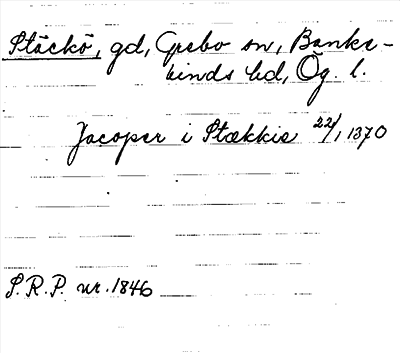 Stäckö, gd, Grebo sn, Banke-
kinds hd, Ög. l.
Jacoper i Stækkis 22/1 1370
S.R.P. nr. 1846